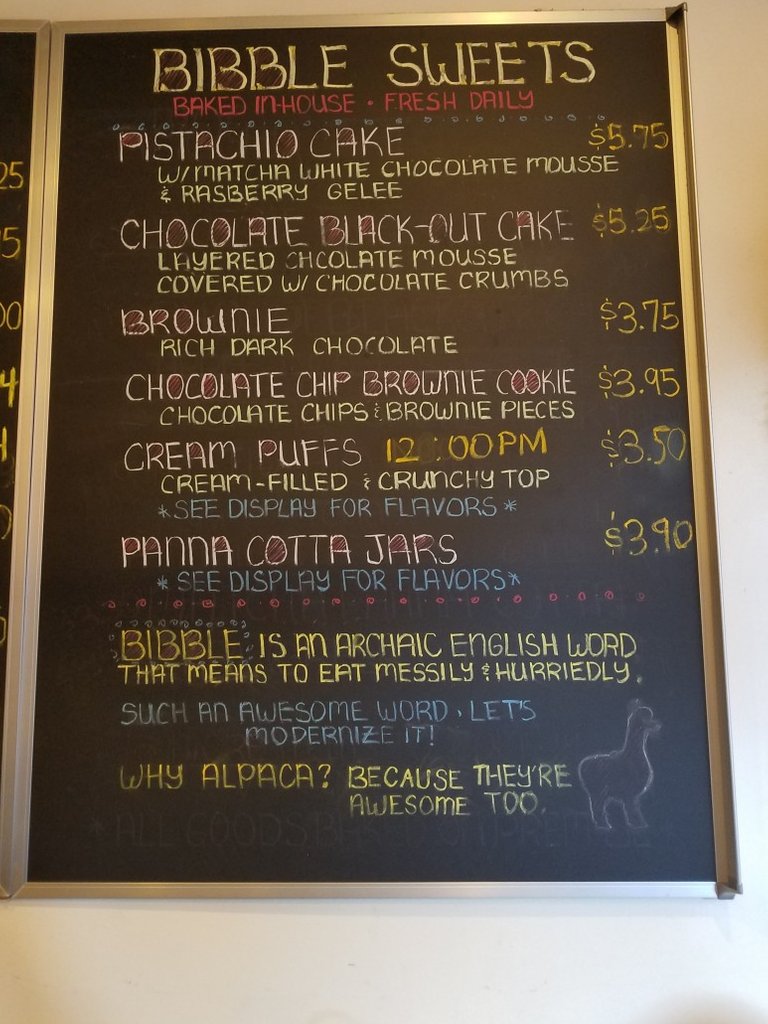 BIBBLE SWEETS
BAKED IN-HOUSE • FRESH DAILY
PISTACHIO CAKE $5.75
W/MATCHA WHITE CHOCOLATE MOUSSE
& RASBERRY GELEE
CHOCOLATE BLACK-OUT CAKE $5.25
LAYERED CHCOLATE MOUSSE
COVERED W/ CHOCOLATE CRUMBS
BROWNIE $3.75
RICH DARK CHOCOLATE
CHOCOLATE CHIP BROWNIE COOKIE $3.95
CHOCOLATE CHIPS & BROWNIE PIECES
CREAM PUFFS 12:00PM $3.50
CREAM-FILLED & CRUNCHY TOP
*SEE DISPLAY FOR FLAVORS*
PANNA COTTA JARS $3.90
*SEE DISPLAY FOR FLAVORS*
BIBBLE IS AN ARCHAIC ENGLISH WORD
THAT MEANS TO EAT MESSILY & HURRIEDLY.
SUCH AN AWESOME WORD, LET'S
MODERNIZE IT!
WHY ALPACA? BECAUSE THEY'RE
AWESOME TOO.